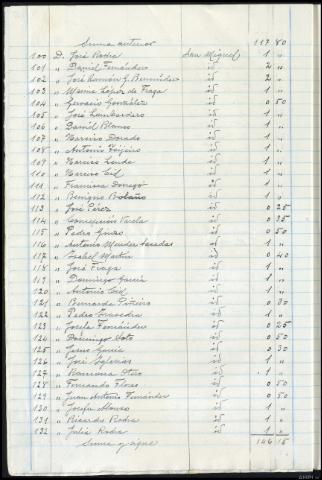 Suma anterior 117 80
100 D. José Rodra San Miguel 1 "
101 " Daniel Fernández id 2 "
102 " José Román G. Bermúdez id 2 "
103 " María López de Fraga id 1 "
104 " Gervasio González id 0 50
105 " José Lombardero id 1 "
106 " Daniel Blanco id 1 "
107 " Narciso Dorado id 1 "
108 " Antonio id 1 "
109 " Narciso id 1 "
110 " Narciso Cid id 1 "
111 " Francisca id 1 "
112 " Benigno Bolaño id 1 "
113 " José Pérez id 0 25
114 " Concepción Varela id 0 35
115 " Pedro id 0 50
116 " Antonio Méndez Casadas id 1 "
117 " Isabel Martín id 0 40
118 " José Fraga id 1 "
119 " Domingo García id 1 "
120 " Antonio Cid id 1 "
121 " Bernarda Piñeiro id 0 30
122 " Pedro id 1 "
123 " Josefa Fernández id 0 25
124 " Domingo Soto id 0 50
125 " Jesús García id 0 30
126 " José Iglesias id 1 "
127 " Ramona Otero id 1 "
128 " Fernando Flores id 0 50
129 " Juan Antonio Fernández id 0 50
130 " Josefa Alonso id 1 "
131 " Ricardo Rodra id 1 "
132 " Julia Rodra id 1 "
Suma y sigue 146 15